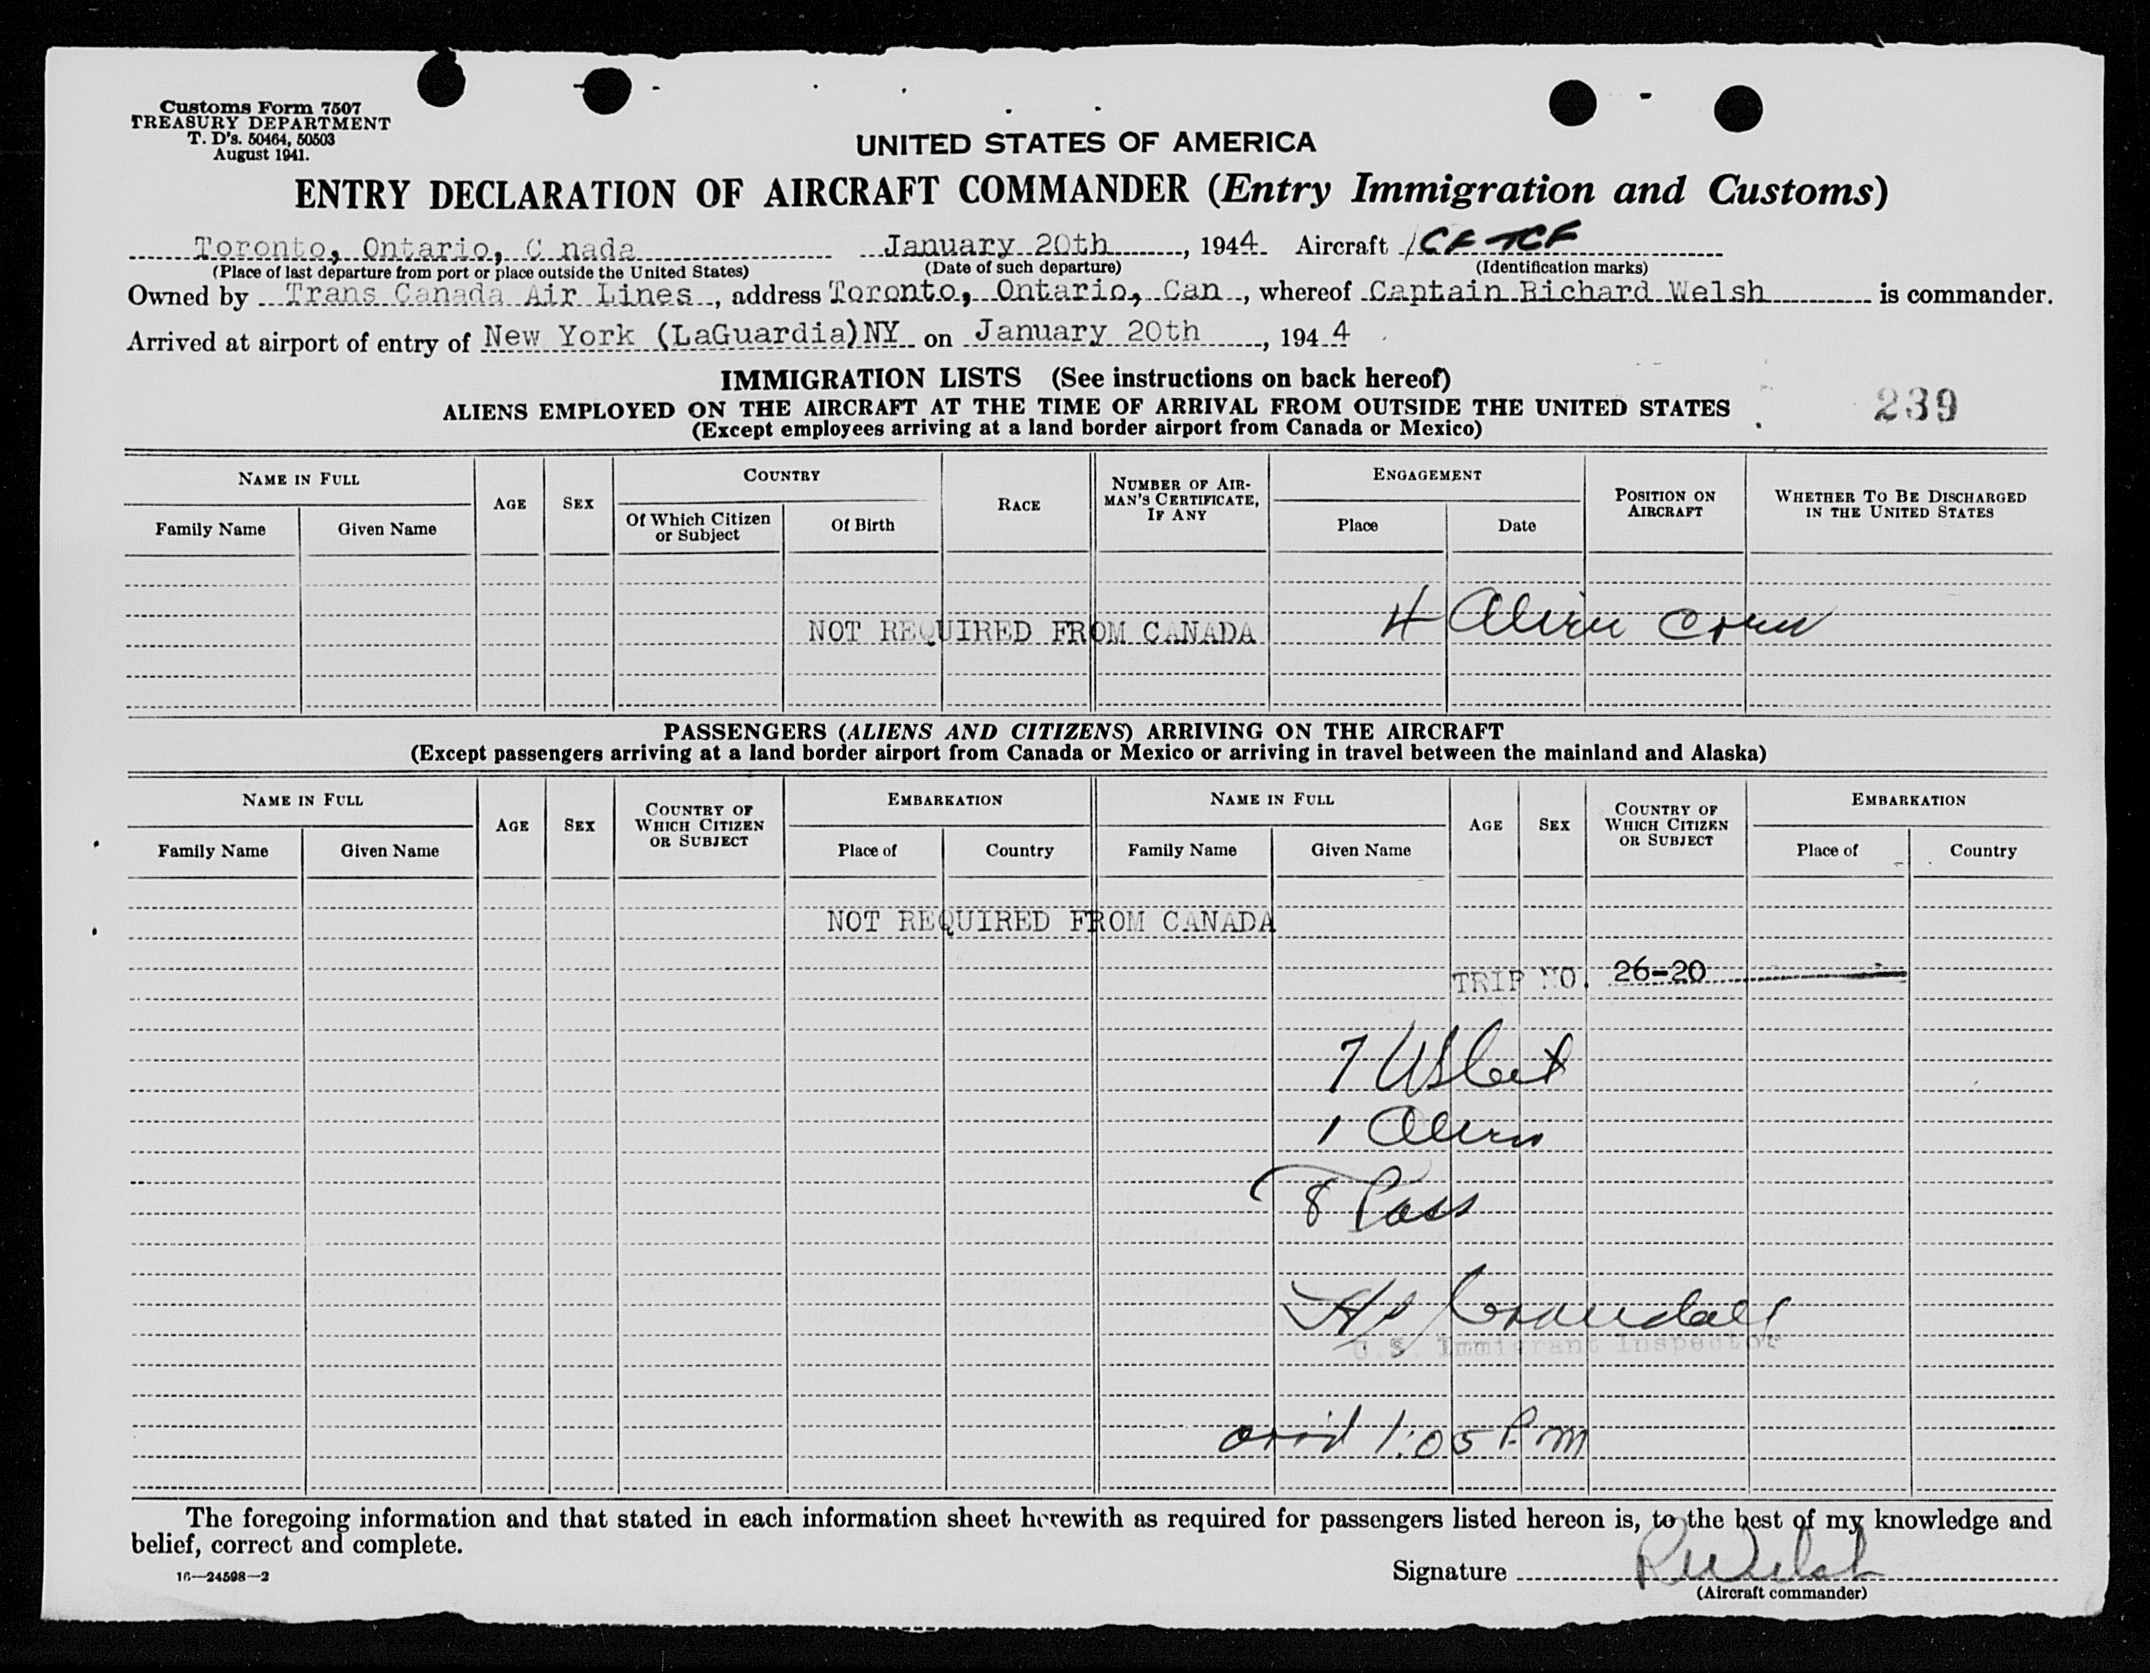 Customs Form 7507
TREASURY DEPARTMENT
T. D's. 50464, 50503
August 1941.
UNITED STATES OF AMERICA
ENTRY DECLARATION OF AIRCRAFT COMMANDER (Entry Immigration and Customs)
Toronto, Ontario, C nada January 20th, 1944 Aircraft CF-TCF
(Place of last departure from port or place outside the United States) (Date of such departure) (Identification marks)
Owned by Trans Canada Air Lines, address Toronto, Ontario, Can, whereof Captain Richard Welsh is commander.
Arrived at airport of entry of New York (LaGuardia)NY on January 20th, 1944
IMMIGRATION LISTS (See instructions on back hereof)
ALIENS EMPLOYED ON THE AIRCRAFT AT THE TIME OF ARRIVAL FROM OUTSIDE THE UNITED STATES
239
(Except employees arriving at a land border airport from Canada or Mexico)
NAME IN FULL AGE SEX COUNTRY RACE NUMBER OF AIRMAN'S CERTIFICATE, IF ANY ENGAGEMENT POSITION ON AIRCRAFT WHETHER TO BE DISCHARGED IN THE UNITED STATES
Family Name Given Name Of Which Citizen or Subject Of Birth Place Date
NOT REQUIRED FROM CANADA 4 Alien Crew
PASSENGERS (ALIENS AND CITIZENS) ARRIVING ON THE AIRCRAFT
(Except passengers arriving at a land border airport from Canada or Mexico or arriving in travel between the mainland and Alaska)
NAME IN FULL AGE SEX COUNTRY OF WHICH CITIZEN OR SUBJECT EMBARKATION NAME IN FULL AGE SEX COUNTRY OF WHICH CITIZEN OR SUBJECT EMBARKATION
Family Name Given Name Place of Country Family Name Given Name Place of Country
NOT REQUIRED FROM CANADA
TRIP NO. 26-20
7 US Cit
1 Alien
8 Pass
Crandall
U.S. Immigrant Inspector
arrd 1:05 P.m
The foregoing information and that stated in each information sheet herewith as required for passengers listed hereon is, to the best of my knowledge and
belief, correct and complete.
16—24598—2
Signature R Welsh
(Aircraft commander)